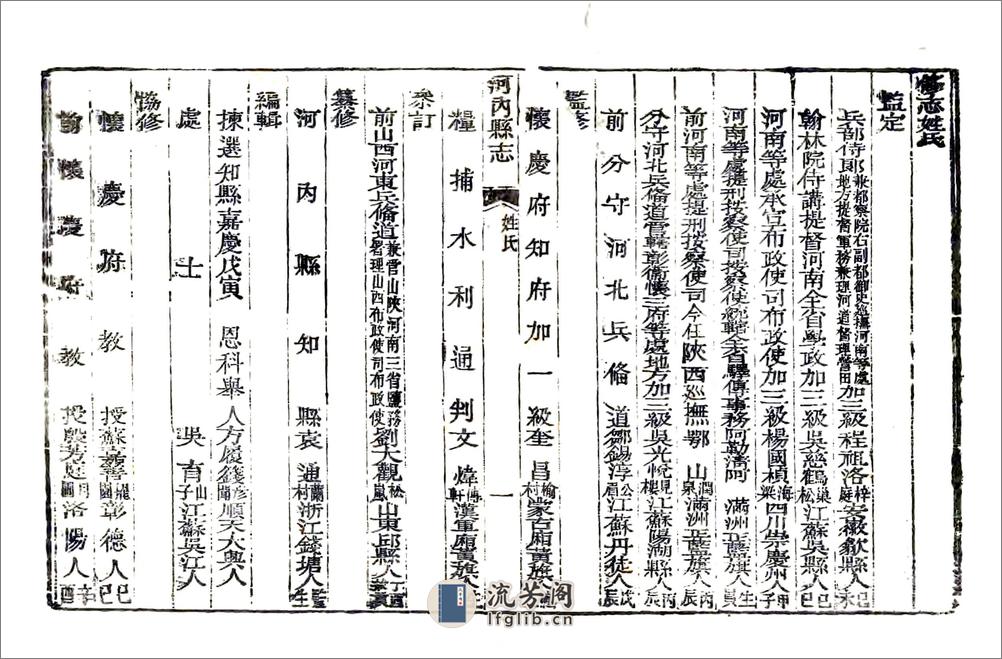 修志姓氏
監定
兵部侍郎兼都察院右副都御史巡撫河南等處地方提督軍務兼理河道督理營田加三級程祖洛梓庭安徽歙縣人己未
翰林院侍講提督河南全省學政加三級吳慈鶴巢松江蘇吳縣人己巳
河南等處承宣布政使司布政使加三級楊國楨海梁四川崇慶州人甲子
河南等處提刑按察使司按察使統轄全省驛傳事務阿勒清阿滿洲正藍旗人生員
前河南等處提刑按察使司今任陝西巡撫鄂山潤泉滿洲正藍旗人丙辰
分守河北兵備道管轄彰衛懷三府等處地方加三級吳光悅見樓江蘇陽湖縣人丙辰
前分守河北兵備道鄒錫淳公眉江蘇丹徒人戊辰
監修
懷慶府知府加一級奎昌榆村蒙古廂黃旗人
糧捕水利通判文煒傅軒漢軍廂黃旗人
河內縣志
姓氏
一
參訂
前山西河東兵備道兼管山陝河南三省鹽務署理山西布政使司布政使劉大觀松嵐山東邱縣人丁酉
纂修
河內縣知縣袁通蘭村浙江錢塘人監生
編輯
揀選知縣嘉慶戊寅恩科舉人方履籛彥聞順天大興人
處士吳育山子江蘇吳江人
協修
懷慶府教授蘇嘉彰德人己巳
前懷慶府教授殷芳庭洛陽人辛酉
流芳阁
lfglib.cn